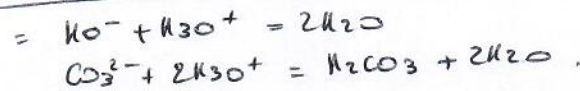 = HO⁻ + H3O⁺ = 2H2O
CO3²⁻ + 2H3O⁺ = H2CO3 + 2H2O .